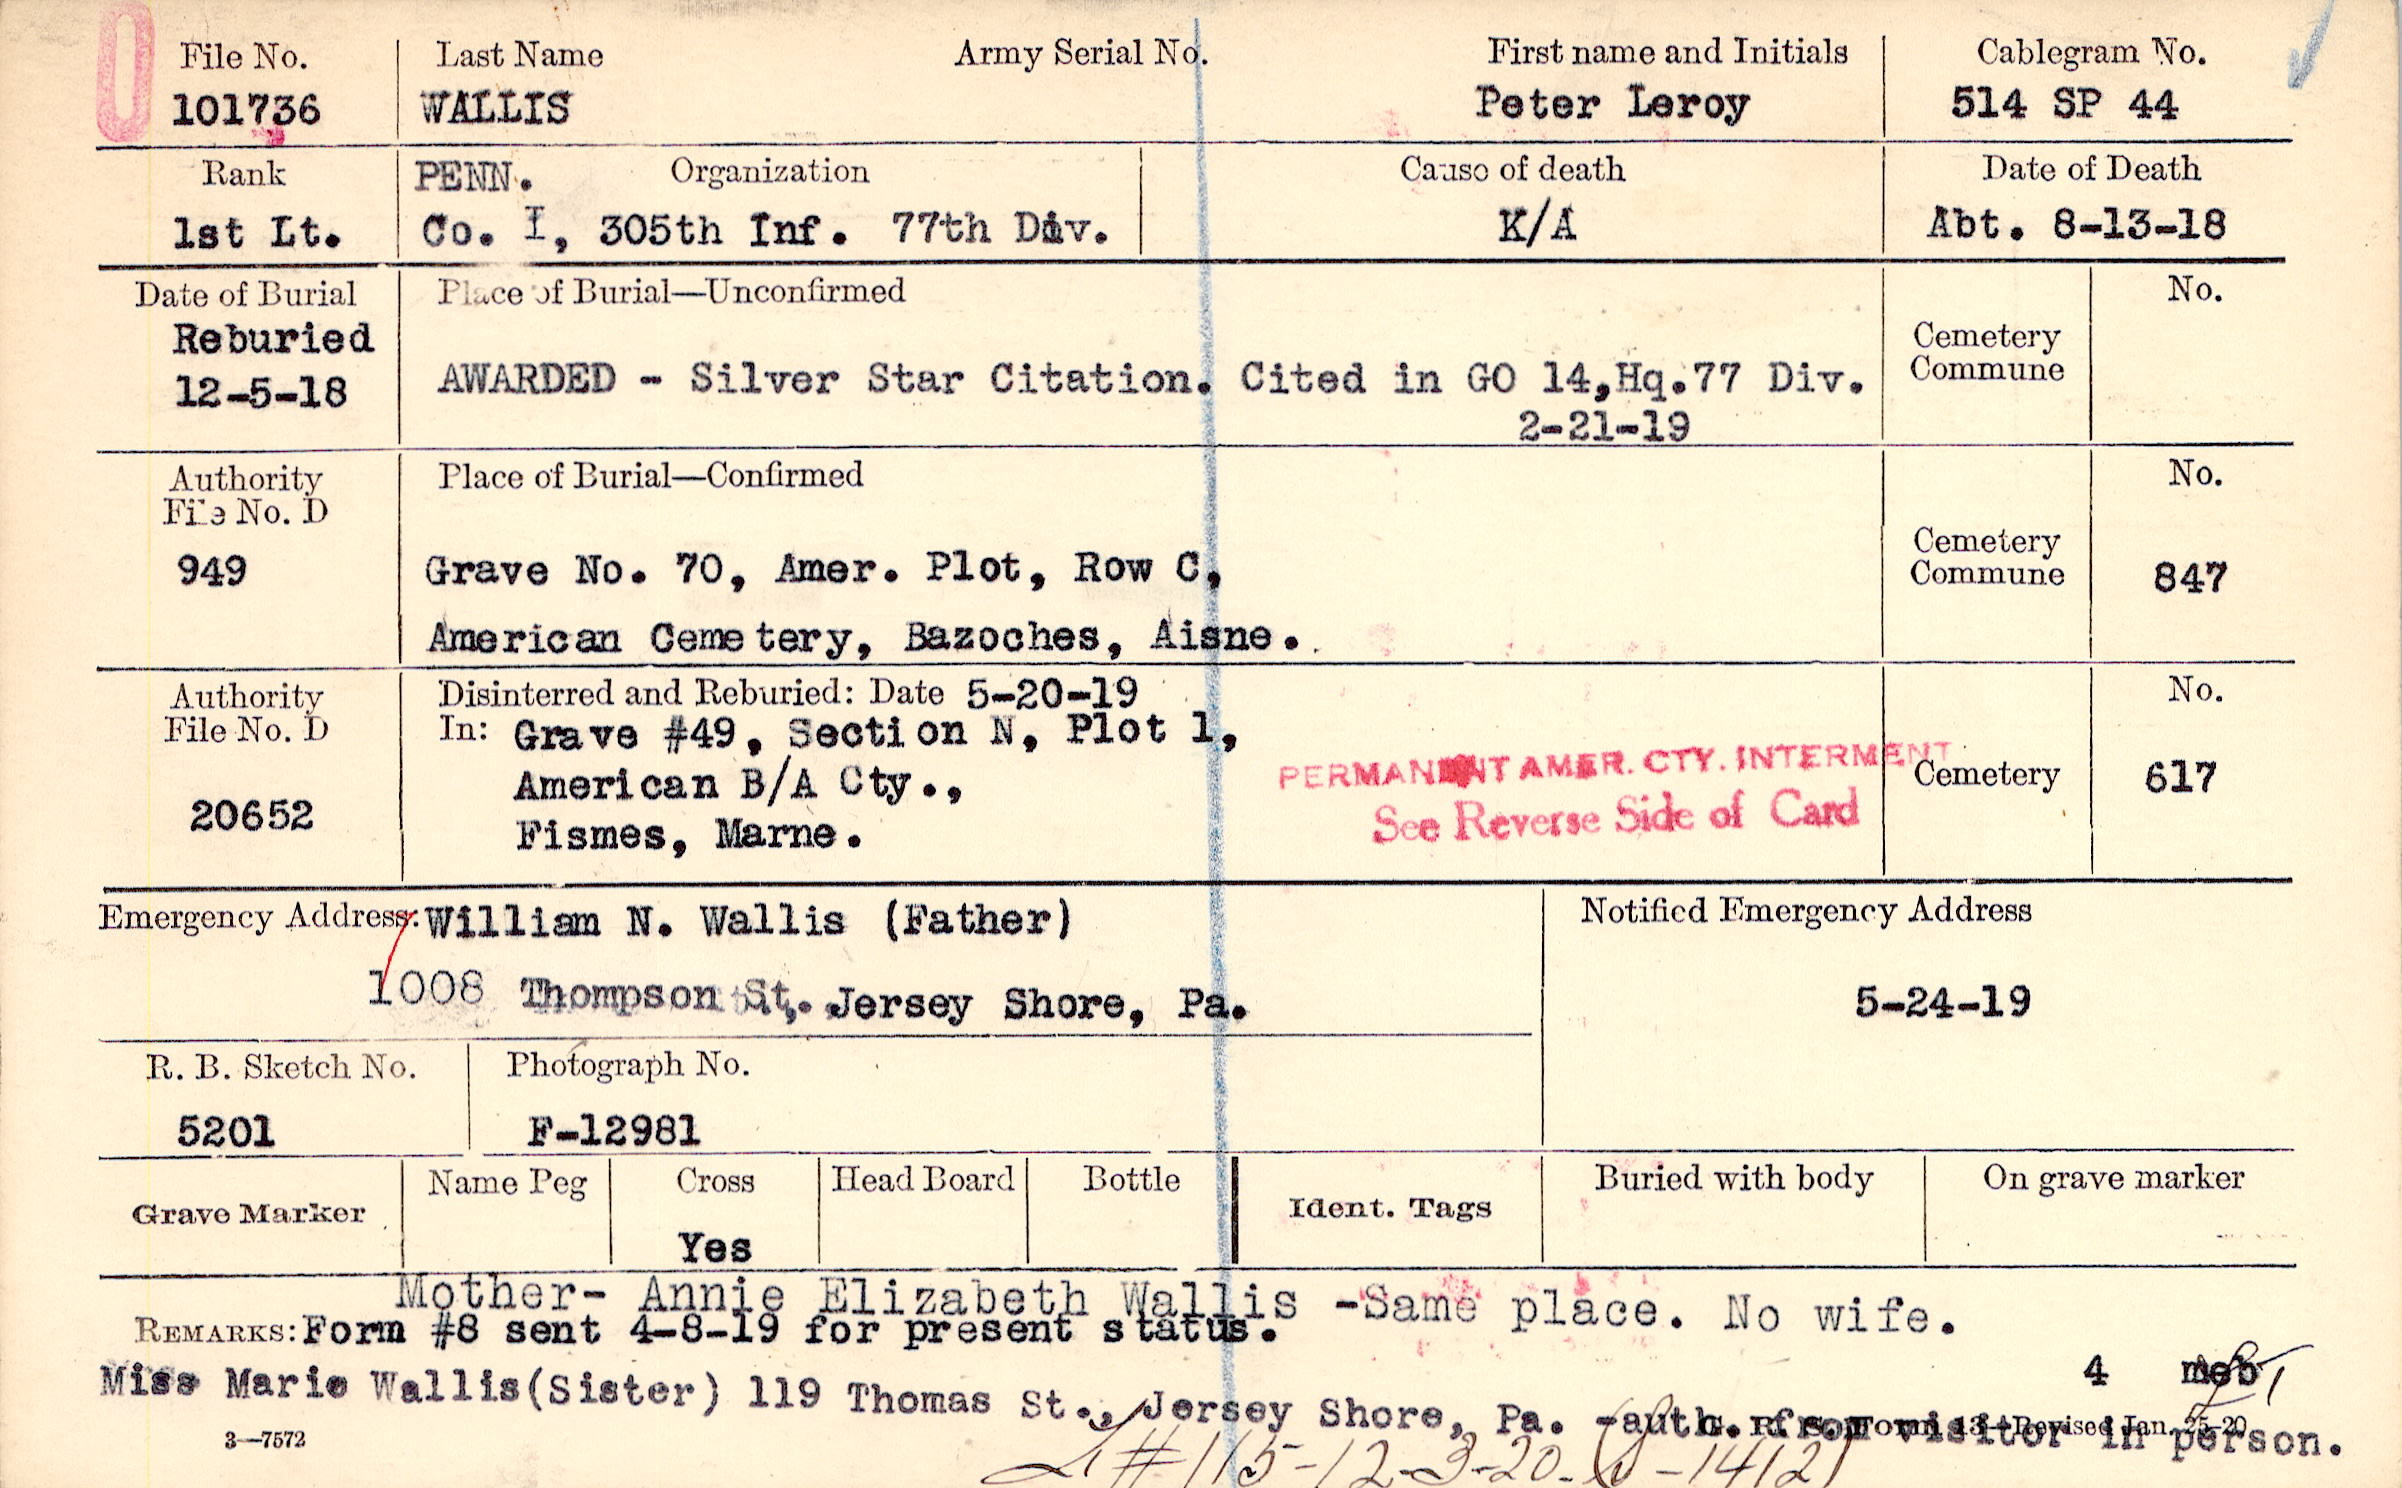 File No. Last Name Army Serial No. First name and Initials Cablegram No.
101736 WALLIS Peter Leroy 514 SP 44
Rank PENN. Organization Cause of death Date of Death
1st Lt. Co. I, 305th Inf. 77th Div. K/A Abt. 8-13-18
Date of Burial Place of Burial—Unconfirmed No.
Reburied Cemetery
12-5-18 AWARDED - Silver Star Citation. Cited in GO 14,Hq.77 Div. Commune
2-21-19
Authority Place of Burial—Confirmed No.
File No. D
949 Grave No. 70, Amer. Plot, Row C, Cemetery Commune 847
American Cemetery, Bazoches, Aisne.
Authority Disinterred and Reburied: Date 5-20-19 No.
File No. D In: Grave #49, Section N, Plot 1,
American B/A Cty., PERMANENT AMER. CTY. INTERMENT Cemetery 617
20652 Fismes, Marne. See Reverse Side of Card
Emergency Address: William N. Wallis (Father) Notified Emergency Address
1008 Thompson St. Jersey Shore, Pa. 5-24-19
R. B. Sketch No. Photograph No.
5201 F-12981
Grave Marker Name Peg Cross Head Board Bottle Ident. Tags Buried with body On grave marker
Yes
Mother- Annie Elizabeth Wallis -Same place. No wife.
REMARKS: Form #8 sent 4-8-19 for present status.
4 meb
Miss Marie Wallis(Sister) 119 Thomas St., Jersey Shore, Pa. -auth. from visitor in person.
3—7572 G. R. S. Form 13—Revised Jan. 25-20
#115-12-3-20-